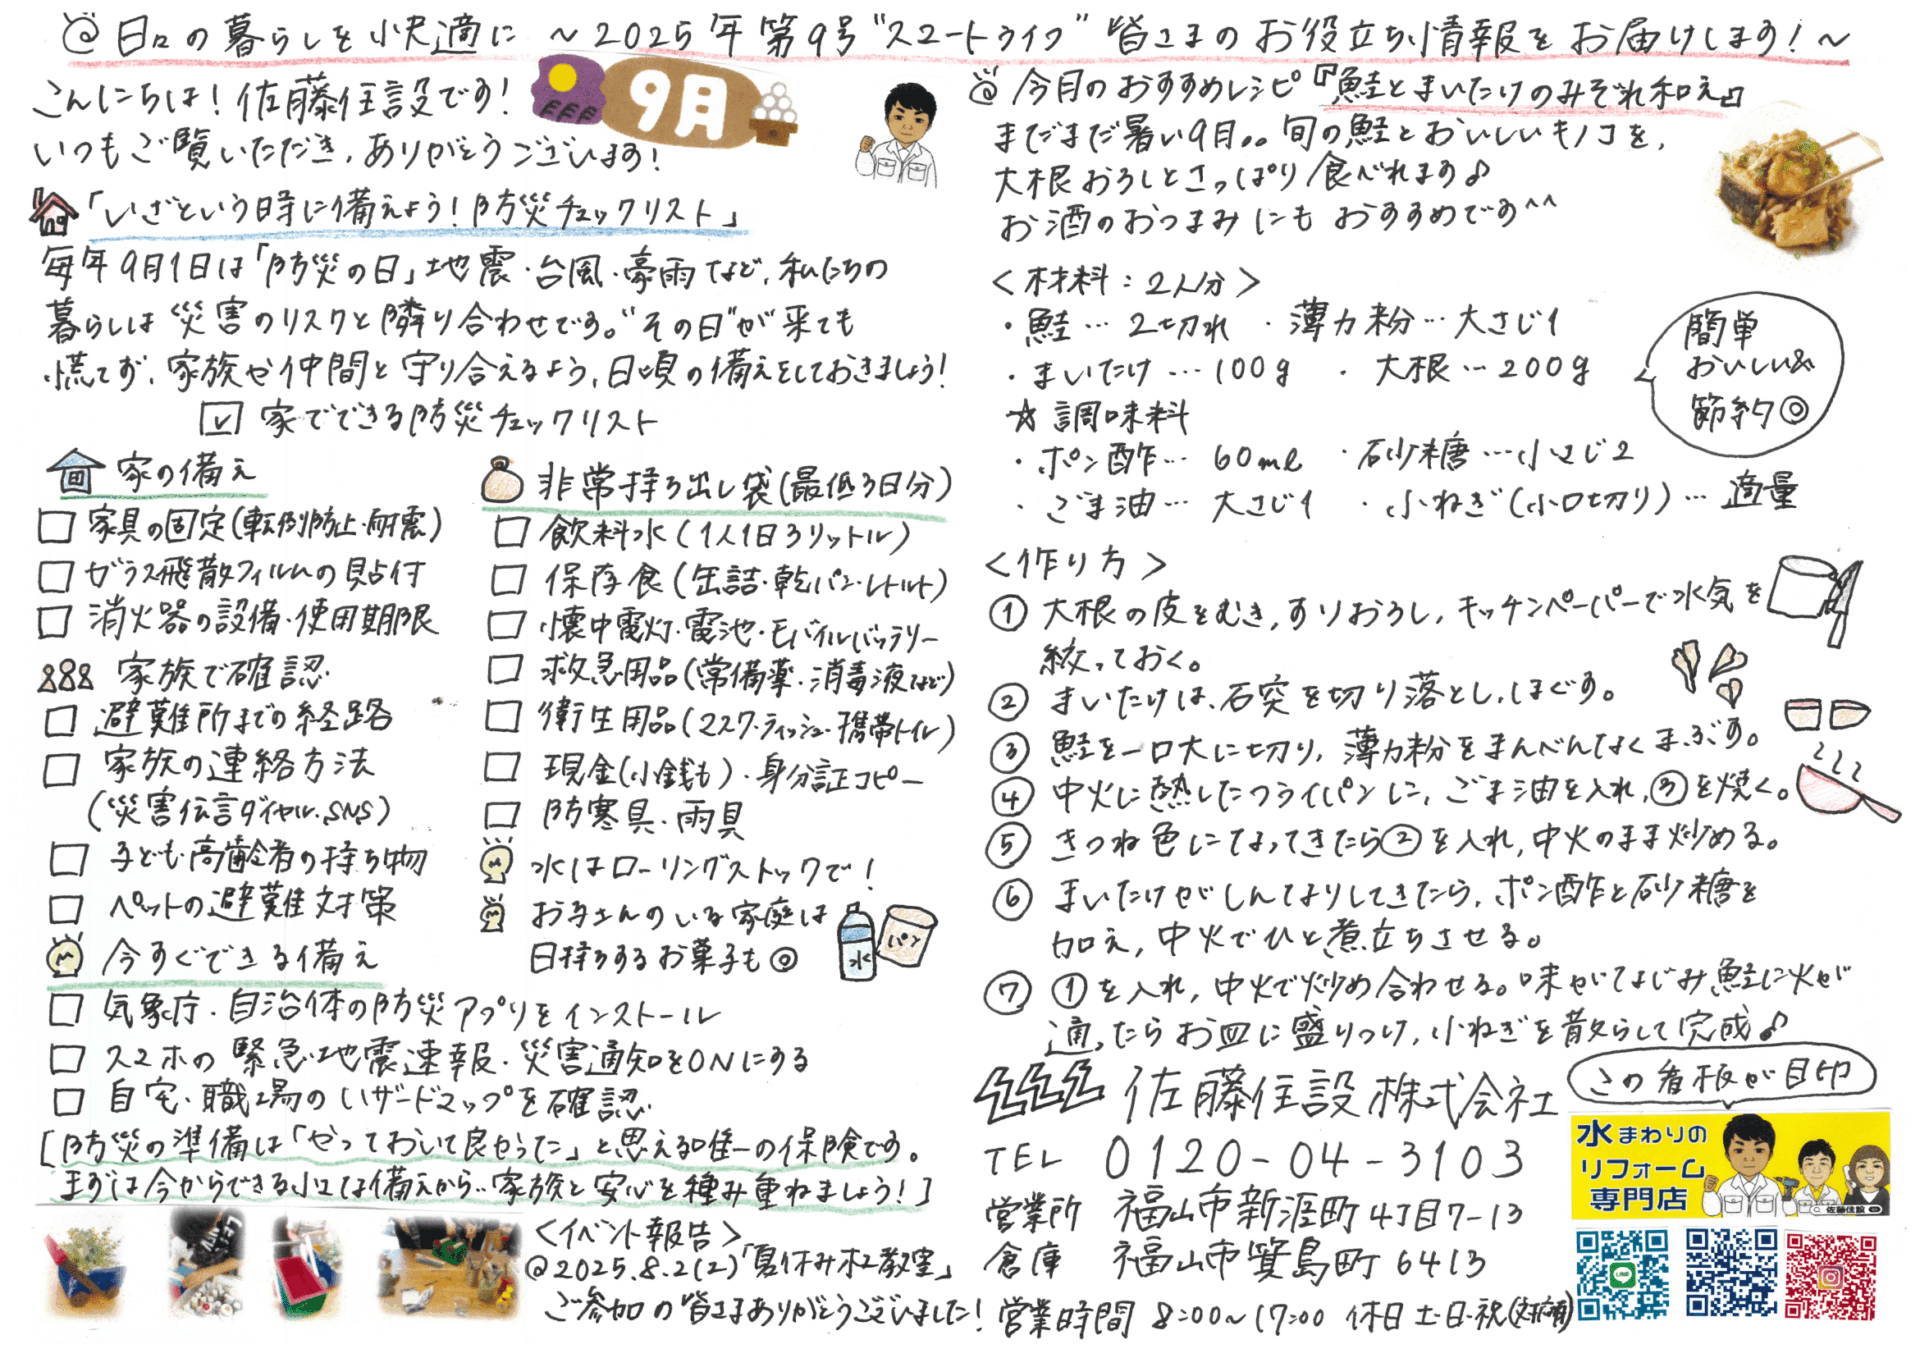 日々の暮らしを快適に ～2025年第9号"スマートライフ" 皆さまのお役立ち情報をお届けします！～
こんにちは！佐藤住設です！
いつもご覧いただき、ありがとうございます！
9月
「いざという時に備えよう！防災チェックリスト」
毎年9月1日は「防災の日」地震・台風・豪雨など、私たちの
暮らしは災害のリスクと隣り合わせです。"その日"が来ても
慌てず、家族や仲間と守り合えるよう、日頃の備えをしておきましょう！
☑ 家でできる防災チェックリスト
家の備え
□ 家具の固定(転倒防止・耐震)
□ ガラス飛散フィルムの貼付
□ 消火器の設備・使用期限
家族で確認
□ 避難所までの経路
□ 家族の連絡方法
(災害伝言ダイヤル・SNS)
□ 子ども・高齢者の持ち物
□ ペットの避難対策
今すぐできる備え
□ 気象庁・自治体の防災アプリをインストール
□ スマホの緊急地震速報・災害通知をONにする
□ 自宅・職場のハザードマップを確認
非常持ち出し袋(最低3日分)
□ 飲料水(1人1日3リットル)
□ 保存食(缶詰・乾パン・レトルト)
□ 懐中電灯・電池・モバイルバッテリー
□ 救急用品(常備薬・消毒液など)
□ 衛生用品(マスク・ティッシュ・携帯トイレ)
□ 現金(小銭も)・身分証コピー
□ 防寒具・雨具
水はローリングストックで！
お子さんのいる家庭は
日持ちするお菓子も◎
水
パン
[防災の準備は「やっておいて良かった」と思える唯一の保険です。
まずは今からできる小さな備えから、家族と安心を積み重ねましょう！]
＜イベント報告＞
@2025.8.2(土)「夏休み木工教室」
ご参加の皆さまありがとうございました！
今月のおすすめレシピ『鮭とまいたけのみぞれ和え』
まだまだ暑い9月。。旬の鮭とおいしいキノコを、
大根おろしとさっぱり食べれます♪
お酒のおつまみにもおすすめです^^
＜材料：2人分＞
・鮭…2切れ ・薄力粉…大さじ1
・まいたけ…100g ・大根…200g
☆調味料
・ポン酢…60ml ・砂糖…小さじ2
・ごま油…大さじ1 ・小ねぎ(小口切り)…適量
簡単
おいしい&
節約◎
＜作り方＞
① 大根の皮をむき、すりおろし、キッチンペーパーで水気を
絞っておく。
② まいたけは、石突を切り落とし、ほぐす。
③ 鮭を一口大に切り、薄力粉をまんべんなくまぶす。
④ 中火に熱したフライパンに、ごま油を入れ、③を焼く。
⑤ きつね色になってきたら②を入れ、中火のまま炒める。
⑥ まいたけがしんなりしてきたら、ポン酢と砂糖を
加え、中火でひと煮立ちさせる。
⑦ ①を入れ、中火で炒め合わせる。味がなじみ鮭に火が
通ったらお皿に盛りつけ、小ねぎを散らして完成♪
佐藤住設株式会社
TEL 0120-04-3103
営業所 福山市新涯町4丁目7-13
倉庫 福山市箕島町6413
営業時間 8:00～17:00 休日 土・日・祝(対応有)
この看板が目印
水まわりの
リフォーム
専門店
佐藤住設
LINE